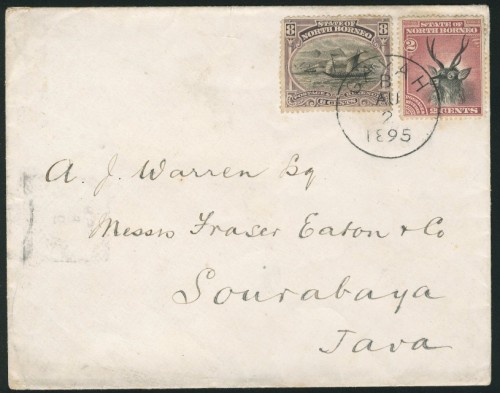 8 STATE OF NORTH BORNEO 8
8 CENTS
2 STATE OF NORTH BORNEO
2 CENTS
B
AU
2
1895
A. J. Warren Esq
Messrs Fraser Eaton & Co
Sourabaya
Java